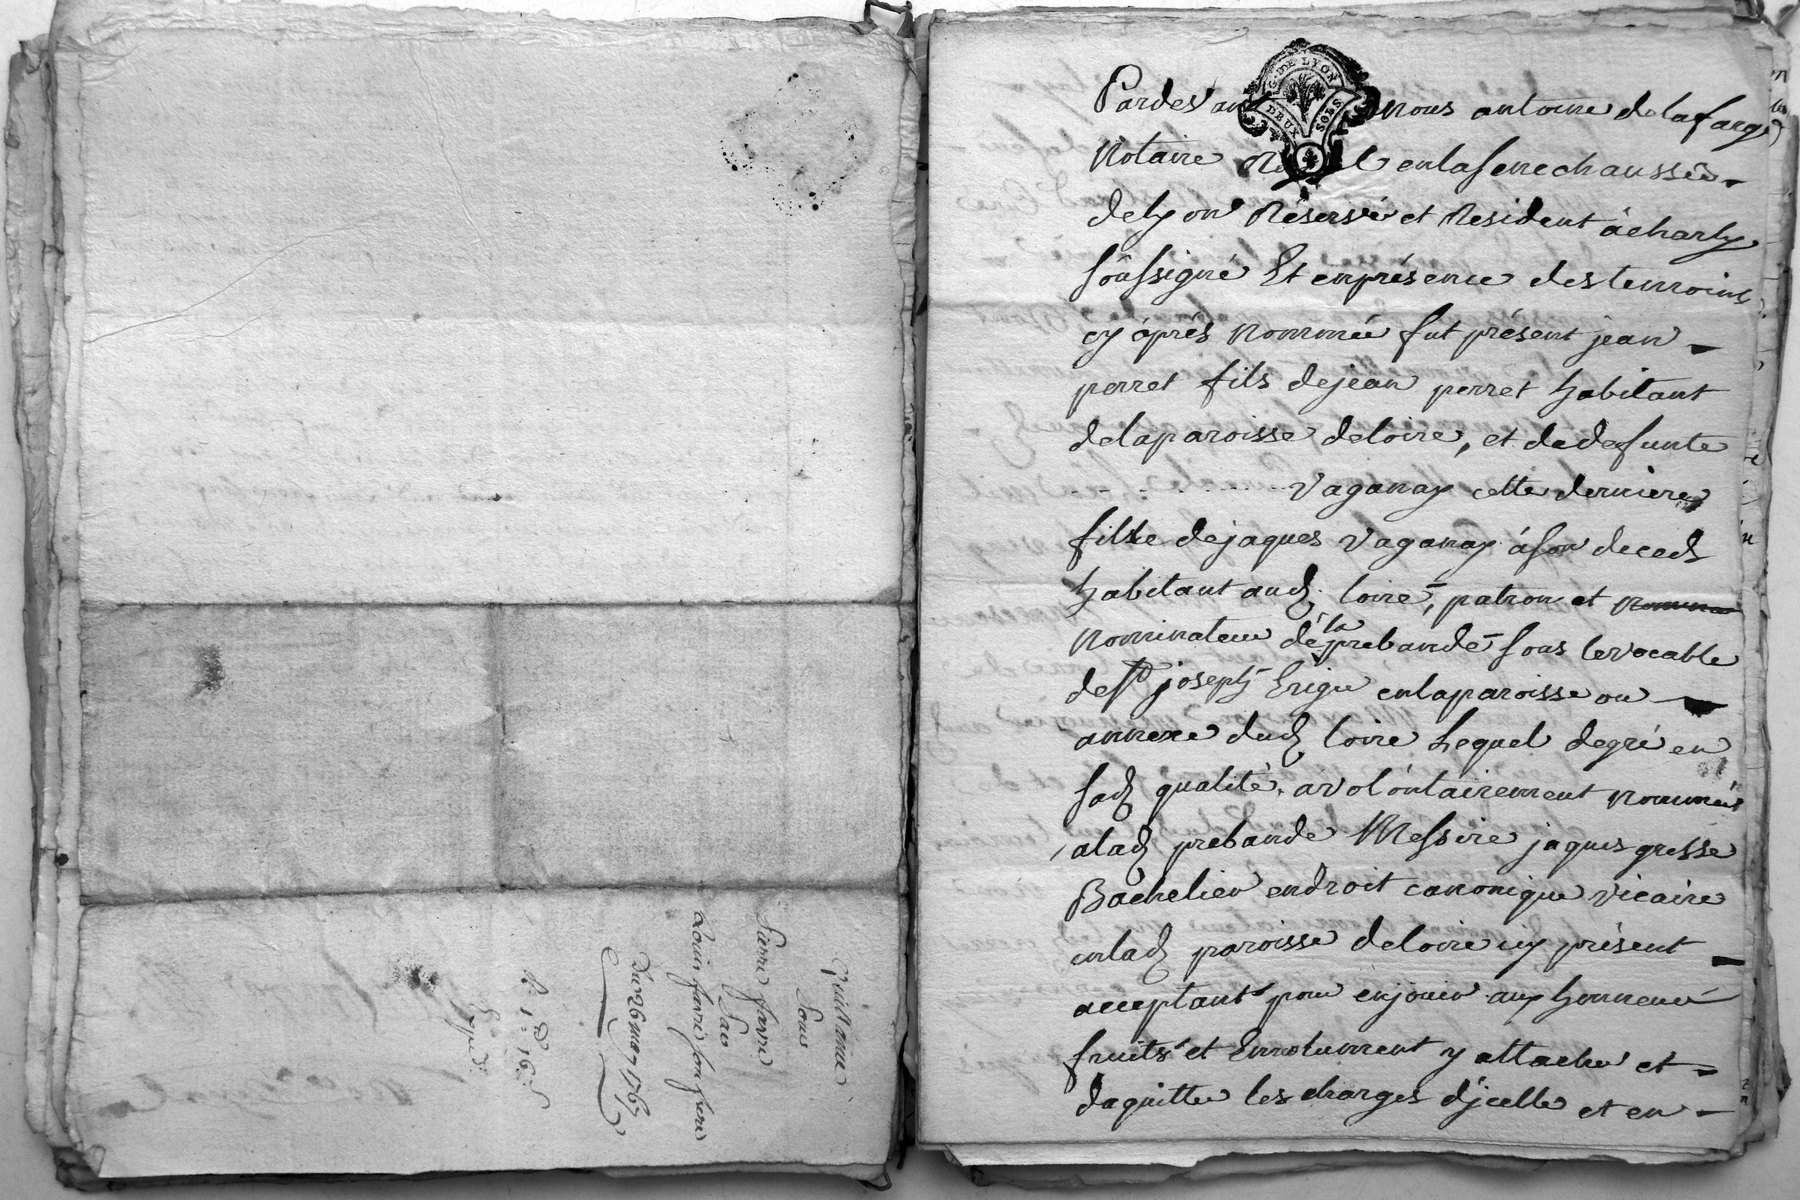 Quittance
Sous
Pierre farre
Sac
Louis farre son frere
Du 26 may 1767
G. DE LYON
DEUX SOLS
Pardevant nous antoine delafarge
Notaire Royal enlasenechaussée
delyon Réservé et Resident acharly
soûssigné Et enprésence des temoins
cy áprés nommée fut présent jean
perret fils dejean perret habitant
delaparoisse deloire, et de defunte
Vaganay cette derniere
fille dejaques vaganay ason deced
habitant aud. loire, patron et
nominateur de la prebande sous levocable
de St joseph Erigée enlaparoisse ou
annexe dud loire Lequel degré en
sad qualité, avolontairement nommé
alad prebande Messire jaques gresse
Bachelier endroit canonique vicaire
enlad paroisse deloire icy présent
acceptant pour enjouir aux honneur
fruits et Emolument y attaché et
daquitter les charges d'jcelle et en